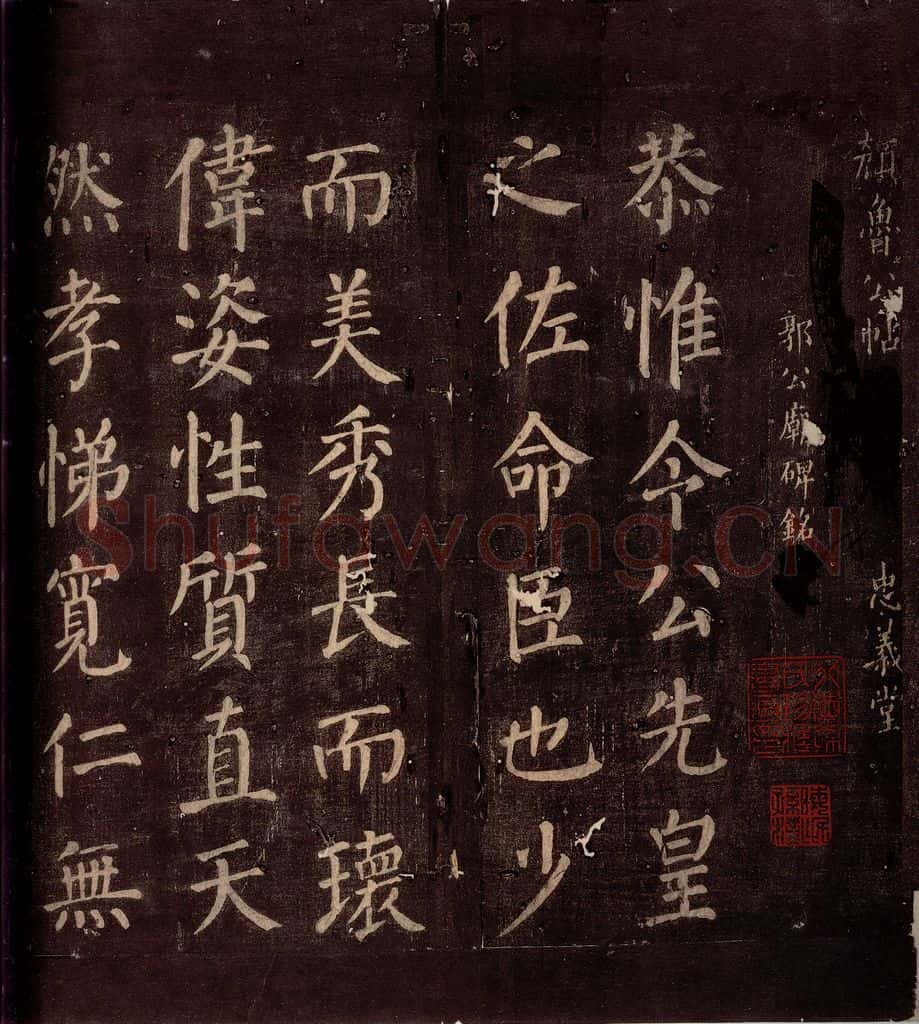 顏魯公帖 忠義堂
郭公廟碑銘
恭惟令公先皇
之佐命臣也少
而美秀長而瓌
偉姿性質直天
然孝悌寬仁無
Shufawang.CN